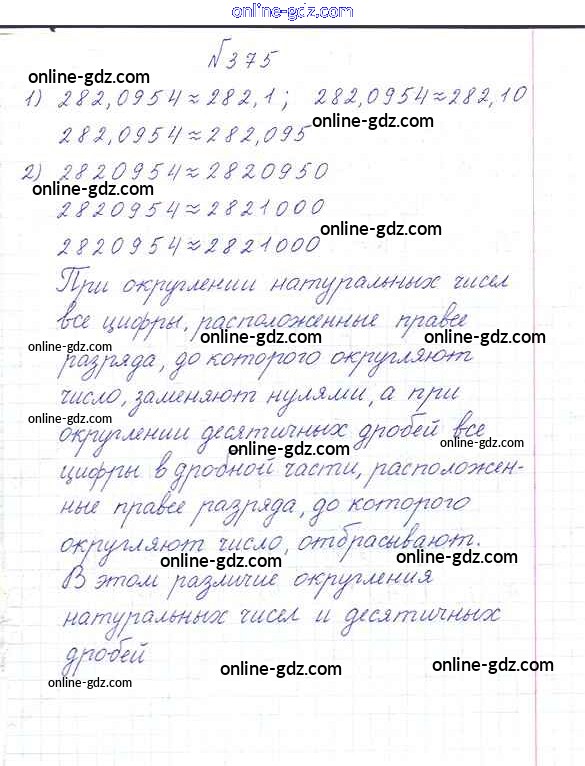 online-gdz.com
№375
online-gdz.com
1) 282,0954≈282,1; 282,0954≈282,10
online-gdz.com
282,0954≈282,095
2) 2820954≈2820950
online-gdz.com
2820954≈2821000
online-gdz.com
2820954≈2821000
При округлении натуральных чисел
все цифры, расположенные правее
online-gdz.com online-gdz.com online-gdz.com
разряда, до которого округляют
число, заменяют нулями, а при
online-gdz.com online-gdz.com
округлении десятичных дробей все
online-gdz.com online-gdz.com
цифры в дробной части, расположен-
ные правее разряда, до которого
округляют число, отбрасывают.
online-gdz.com online-gdz.com
В этом различие округления
натуральных чисел и десятичных
дробей
online-gdz.com online-gdz.com online-gdz.com